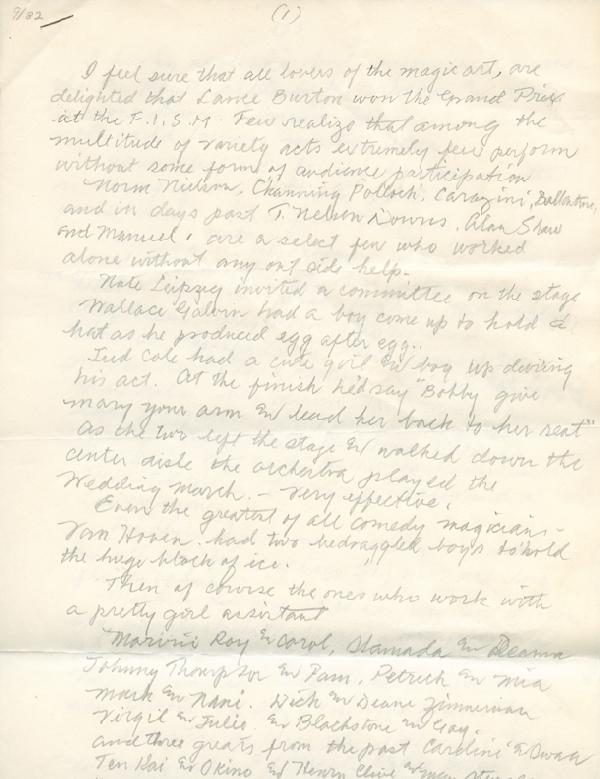 9/82
(1)
I feel sure that all lovers of the magic art, are
delighted that Lance Burton won the Grand Prix
at the F.I.S.M. Few realize that among the
multitude of variety acts extremely few perform
without some form of audience participation
Norm Nielson, Channing Pollock, Carazini, Ballantine,
and in days past T. Nelson Downs, Alan Shaw
and Manuel, are a select few who worked
alone without any out side help.
Nate Leipzig invited a committee on the stage
Wallace Galvin had a boy come up to hold a
hat as he produced egg after egg..
Jud Cole had a cute girl & boy up during
his act. At the finish he'd say "Bobby give
mary your arm & lead her back to her seat"
As the two left the stage & walked down the
center aisle the orchestra played the
Wedding March. - Very effective.
Even the greatest of all comedy magicians -
Van Hoven. had two bedraggled boys to hold
the huge block of ice.
Then of course the ones who work with
a pretty girl assistant
Marvin Roy & Carol, Shamada & Deanna
Johnny Thompson & Pam, Petrick & Mia
Mark & Nani. Dick & Deane Zimmerman
Virgil & Julie & Blackstone & Gay.
and three greats from the past Cardini & Swan
Ten Kai & Okino & Henry Clive &